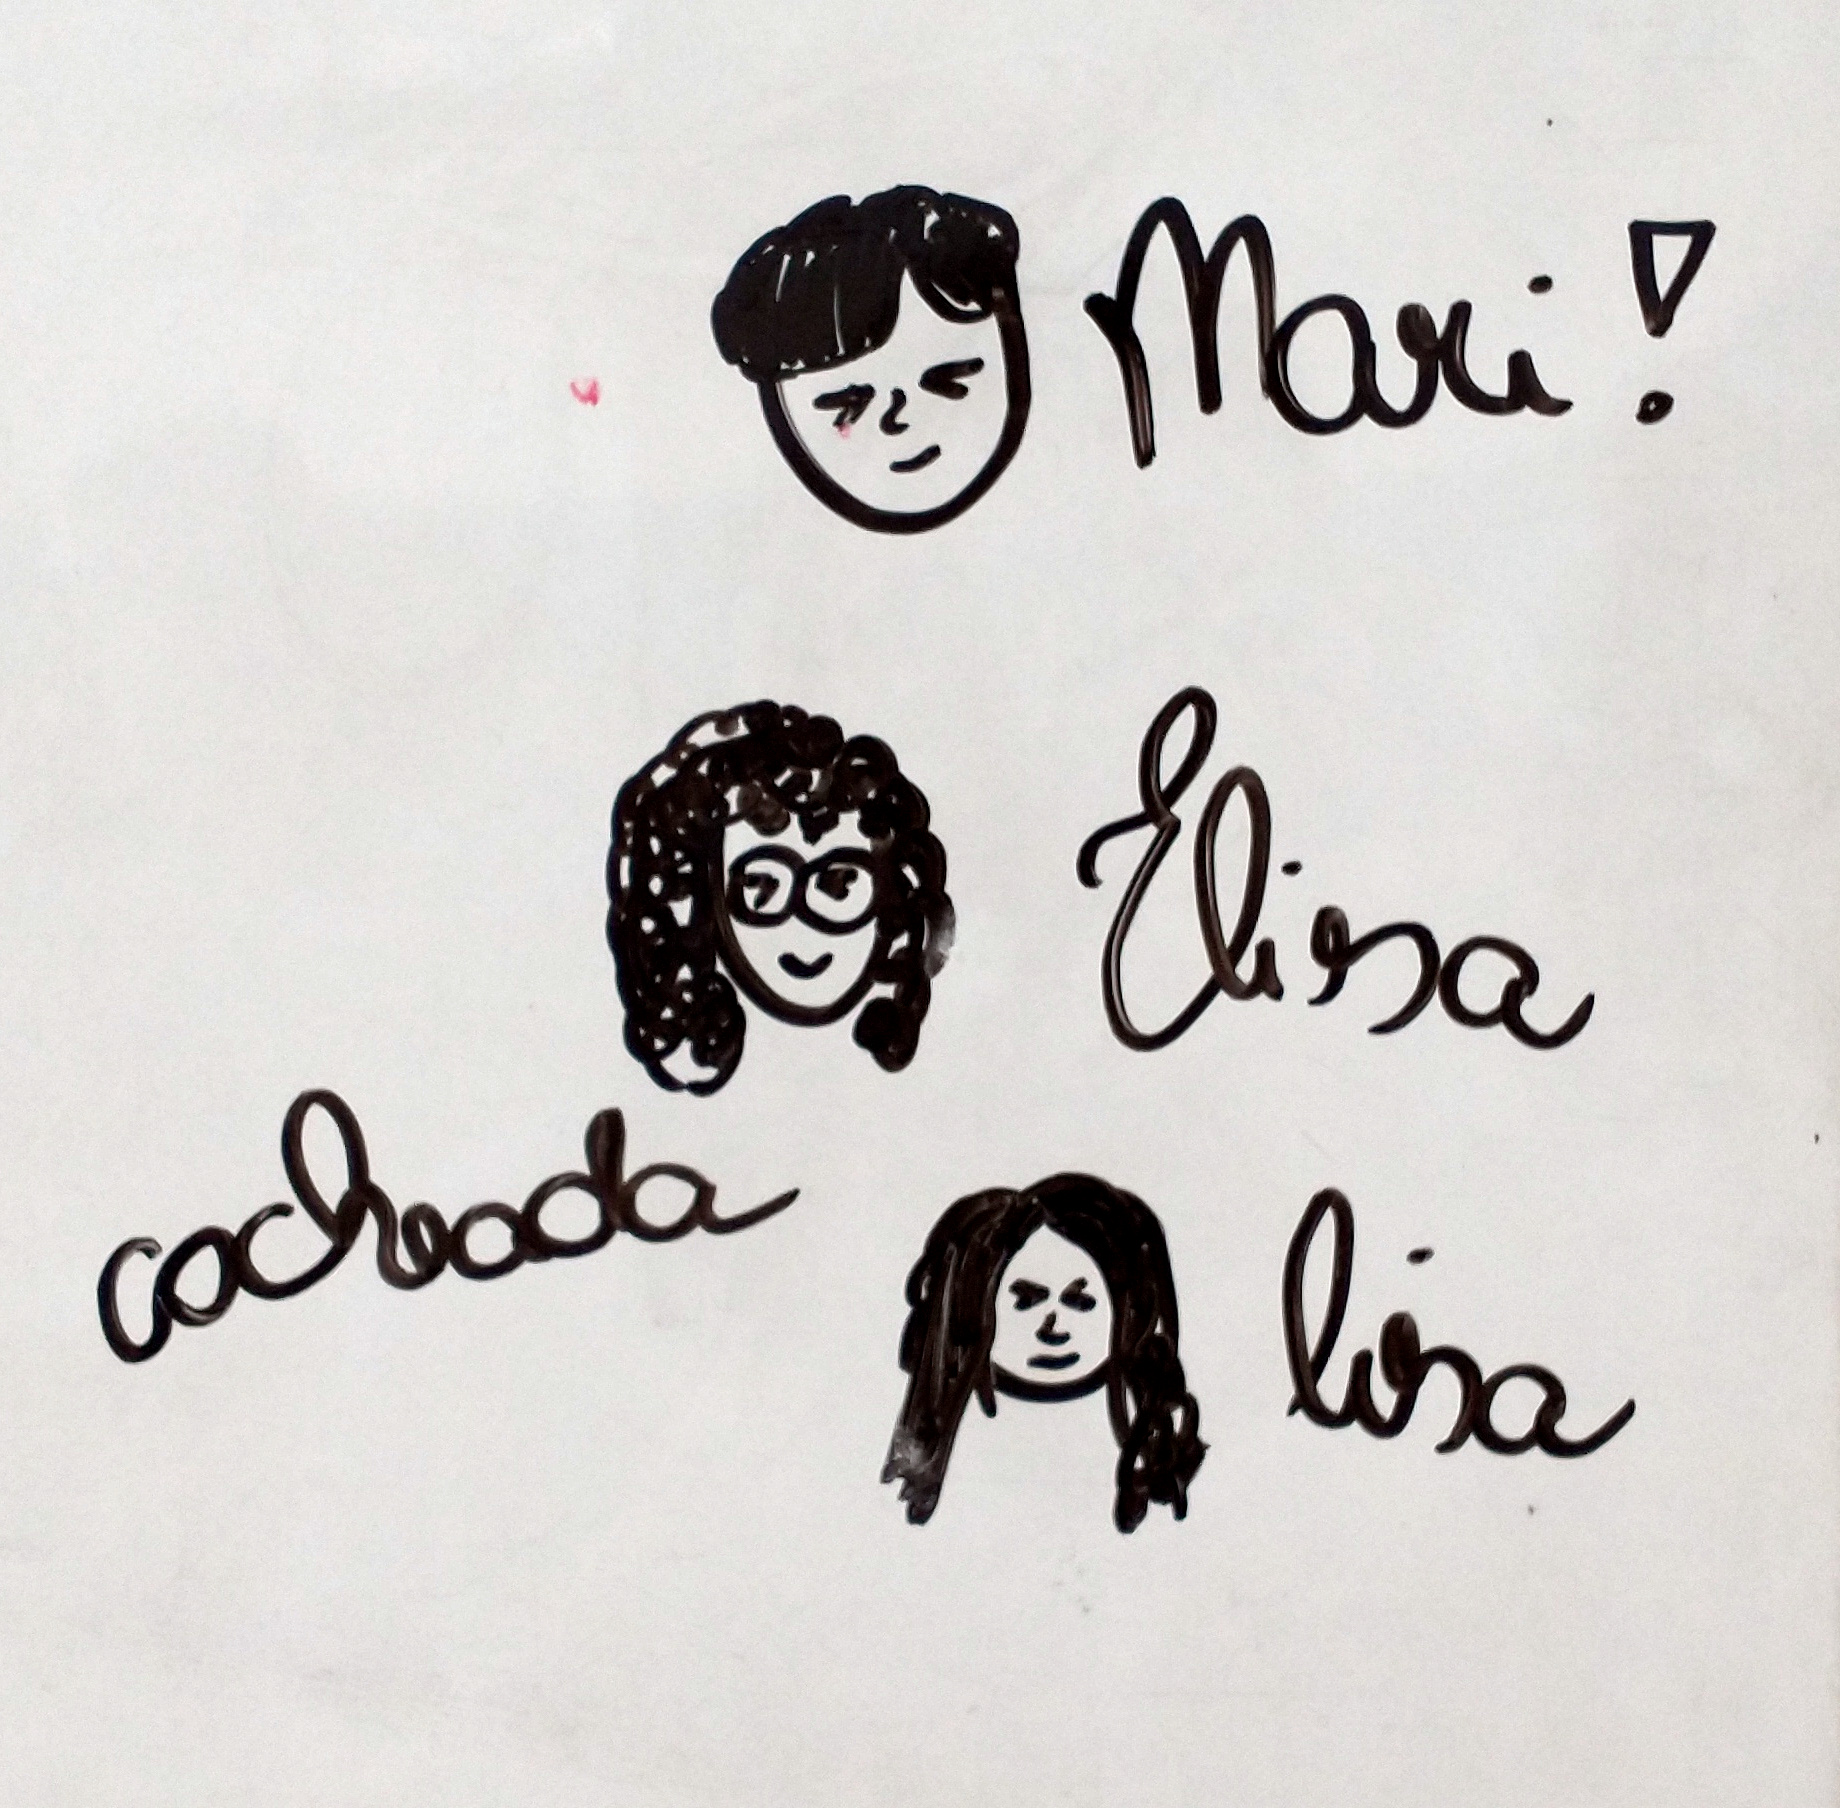 Mari!
Elisa
cacheada
lisa